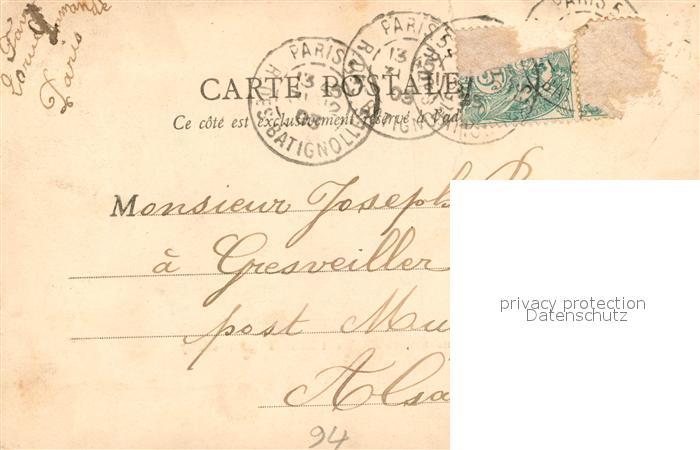 Paris
PARIS 54
13
03
R DES BATIGNOLLES
CARTE POSTALE
Ce côté est exclusivement réservé à l'ad
Monsieur Joseph
à Gresveiller
post Mu
Alsa
94
5
privacy protection
Datenschutz